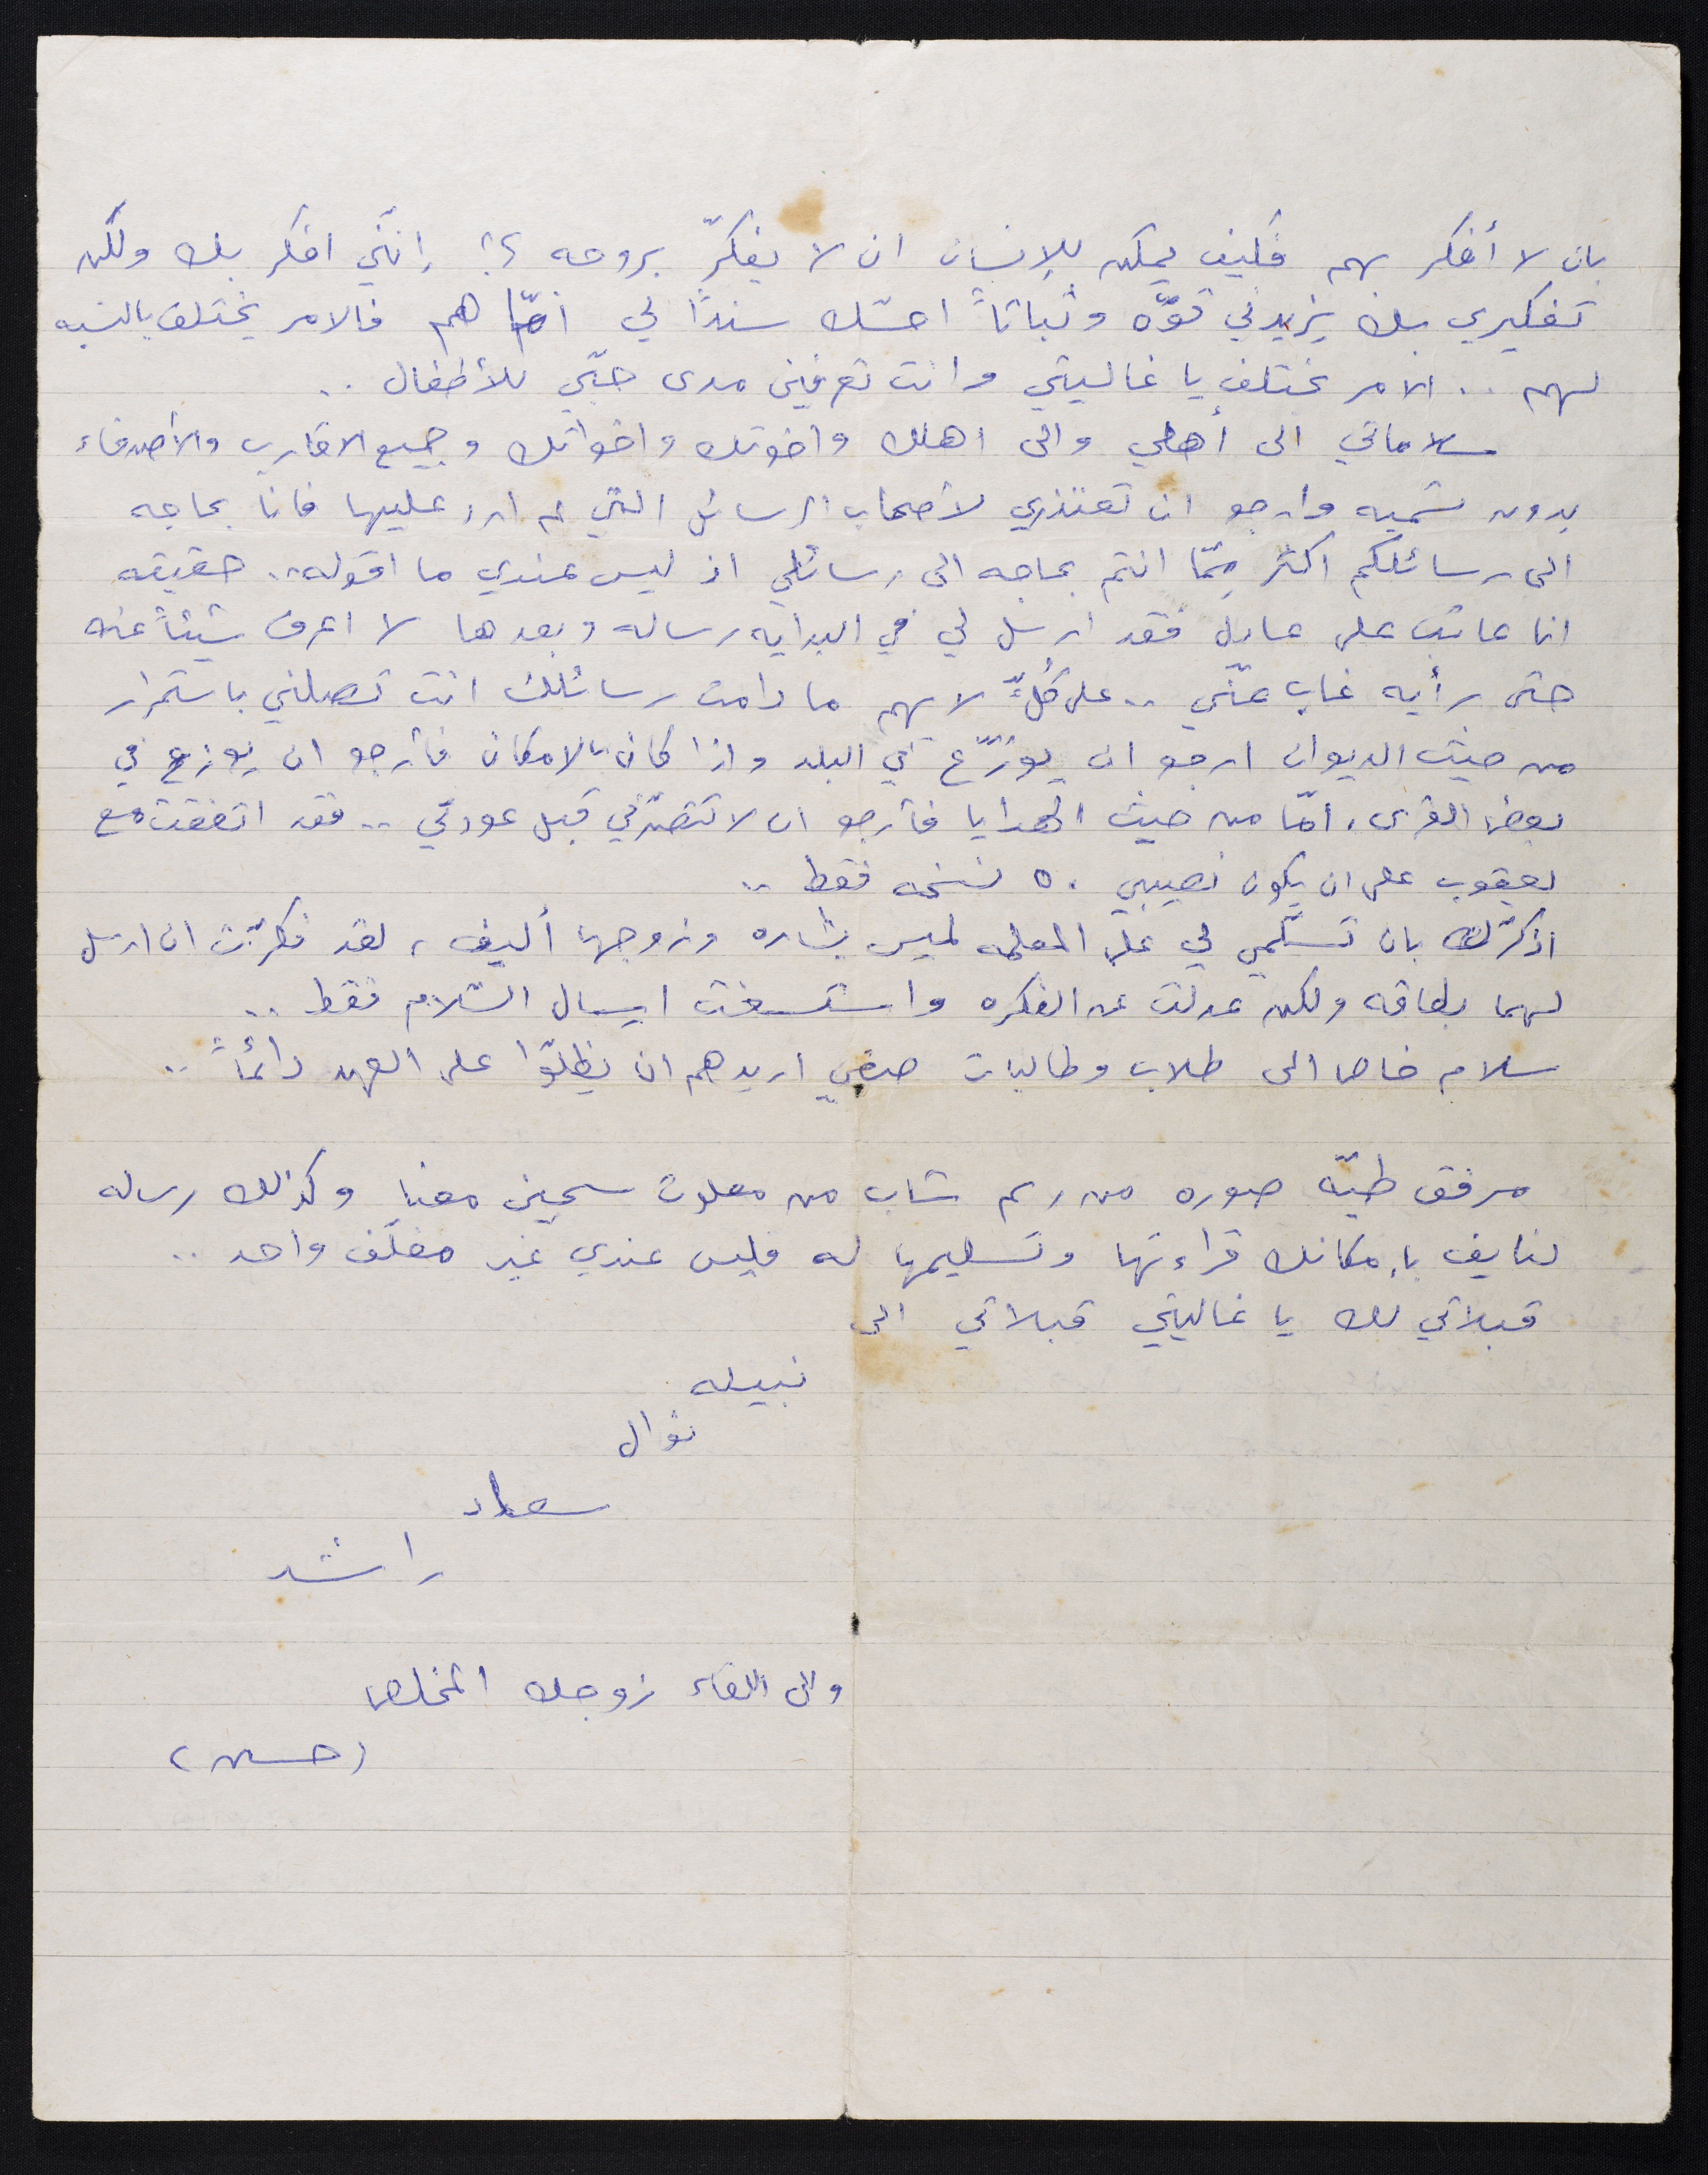 بان لا أفكر بهم فكيف يمكن للإنسان ان لا يفكرّ بروحه ؟! إنّني افكر بك ولكن
تفكيري بك يزيدني قوّه وثباتاً احسّك سنداً لي أمّا هم فالامر يختلف بالنسبه
لهم .. الامر يختلف يا غاليتي وانت تعرفين مدى حبّي للأطفال ..
سلاماتي الى أهلي والى اهلك واخوتك واخواتك وجميع الاقارب والأصدقاء
بدون تسميه وارجو ان تعتذري لاصحاب الرسائل التي لم ارد عليها فانا بحاجه
الى رسائلكم اكثر ممّا انتم بحاجه الى رسائلي اذ ليس عندي ما اقوله .. حقيقه
انا عاتب على عادل فقد ارسل لي في البدايه رساله وبعدها لا اعرف شيئاً عنه
حتى رأيه غاب عنّي .. على كُلٍّ لا يهم ما دامت رسائلك انت تصلني باستمرار
من حيث الديوان ارجو ان يوزّع في البلد واذا كان بالامكان فأرجو ان يوزع في
بعض القرى، امّا من حيث الهدايا فأرجو ان لا تتصرّفي قبل عودتي .. فقد اتفقت مع
يعقوب على ان يكون نصيبي ٥٠ نسخه فقط ..
اذكرّك بان تسلّمي لي على المعلمه لميس بشاره وزوجها أليف، لقد فكرّت ان ارسل
لهما بطاقه ولكن عدلت عن الفكره واستسغت ارسال السّلام فقط ..
سلام خاص الى طلاب وطالبات صفي اريدهم ان يظلّوا على العهد دائماً ..
مرفق طيّه صوره من رسم شاب من معلوت سجين معنا وكذلك رساله
لنايف بإمكانك قراءتها وتسليمها له فليس عندي غير مغلّف واحد ..
قبلاتي لك يا غاليتي قبلاتي الى
نبيله
نوال
سعاد
راشد
والى اللقاء زوجك المخلص
(حسين)